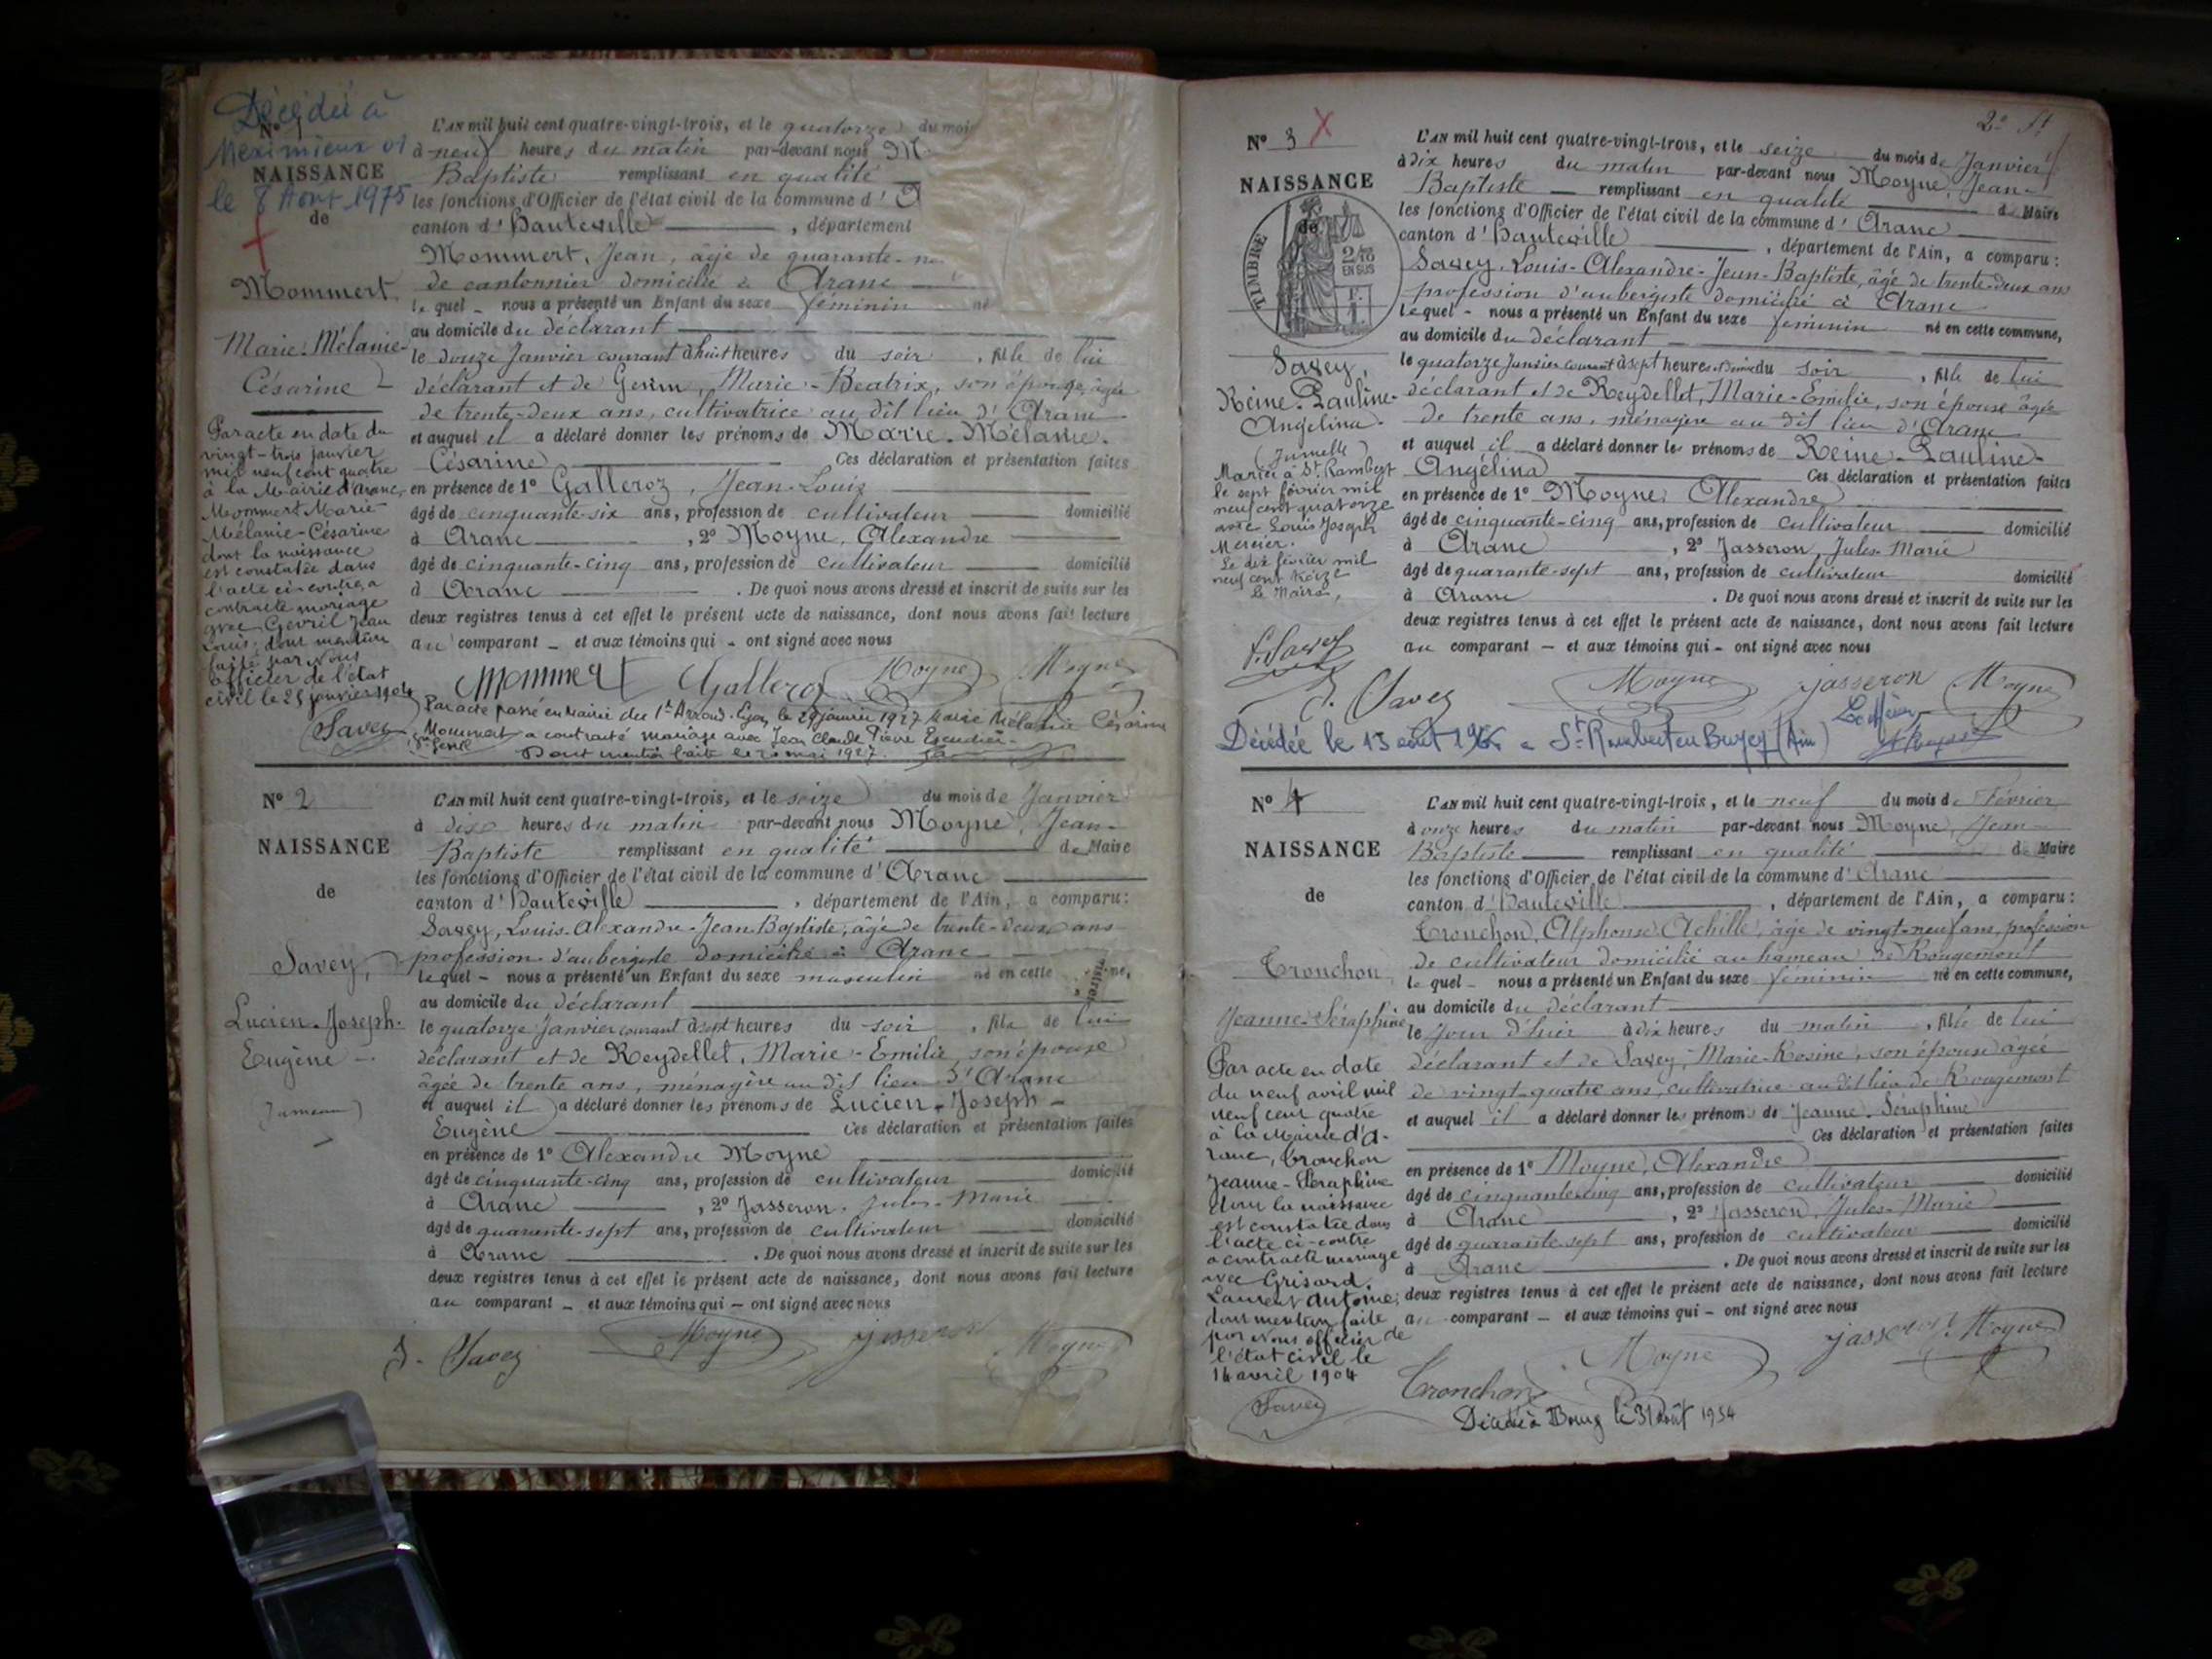 Décédée à
Meximieux 01
le 8 Aout 1975
N° 1
NAISSANCE
de
Mommert
Marie-Mélanie-
Césarine
Par acte en date du
vingt-trois janvier
mil neuf cent quatre
à la Mairie d'Aranc,
Mommert Marie
Mélanie-Césarine
dont la naissance
est constatée dans
l'acte ci-contre, a
contracté mariage
avec Gevril Jean
Louis, dont mention
faite par Nous
officier de l'état
civil le 25 janvier 1904
Savey
L'AN mil huit cent quatre-vingt-trois, et le quatorze du mois
à neuf heures du matin par-devant nous M
Baptiste remplissant en qualité
les fonctions d'Officier de l'état civil de la commune d' A
canton d' Hauteville , département
Mommert, Jean, âgé de quarante-ne
de cantonnier domicilié à Aranc
le quel - nous a présenté un Enfant du sexe féminin né
au domicile du déclarant
le douze Janvier courant à huit heures du soir , fille de lui
déclarant et de , Marie-Beatrix, son épouse, âgée
de trente-deux ans, cultivatrice au dit lieu d'Aranc
et auquel il a déclaré donner les prénoms de Marie-Mélanie-
Césarine Ces déclaration et présentation faites
en présence de 1° Galleroz, Jean-Louis
âgé de cinquante-six ans, profession de cultivateur domicilié
à Aranc , 2° Moyne, Alexandre
âgé de cinquante-cinq ans, profession de cultivateur domicilié
à Aranc . De quoi nous avons dressé et inscrit de suite sur les
deux registres tenus à cet effet le présent acte de naissance, dont nous avons fait lecture
au comparant - et aux témoins qui - ont signé avec nous
Mommert Galleroz Moyne Moyne
Par acte passé en Mairie du 1er Arrond. Lyon le 29 janvier 1927 Marie Mélanie Césarine
Mommert a contracté mariage avec Jean Claude Pierre
Dont mention faite le 20 mai 1927.
N° 2
NAISSANCE
de
Savey,
Lucien-Joseph-
Eugène -
(Jumeau)
L'AN mil huit cent quatre-vingt-trois, et le seize du mois de Janvier
à dix heures du matin par-devant nous Moyne, Jean-
Baptiste remplissant en qualité de Maire
les fonctions d'Officier de l'état civil de la commune d' Aranc
canton d' Hauteville , département de l'Ain, a comparu :
Savey, Louis-Alexandre-Jean-Baptiste, âgé de trente-deux ans
profession d'aubergiste domicilié à Aranc
le quel - nous a présenté un Enfant du sexe masculin né en cette ne,
au domicile du déclarant
le quatorze Janvier courant à sept heures du soir , fils de lui
déclarant et de Reydellet, Marie-Emilie, son épouse
âgée de trente ans, ménagère au dit lieu d'Aranc
et auquel il a déclaré donner les prénoms de Lucien-Joseph-
Eugène Ces déclaration et présentation faites
en présence de 1° Alexandre Moyne
âgé de cinquante-cinq ans, profession de cultivateur domicilié
à Aranc , 2° Jasseron, Jules-Marie
âgé de quarante-sept ans, profession de cultivateur domicilié
à Aranc . De quoi nous avons dressé et inscrit de suite sur les
deux registres tenus à cet effet le présent acte de naissance, dont nous avons fait lecture
au comparant - et aux témoins qui - ont signé avec nous
Savey Moyne Jasseron Moyne
2e
N° 3 X
NAISSANCE
de
TIMBRE
2/10
EN SUS
Savey,
Reine-Pauline-
Angelina-
(Jumelle)
Mariée à St Rambert
le sept février mil
neuf cent quatorze
avec Louis Joseph
Mercier.
Le dix février mil
neuf cent
le Maire,
L. Savey
L'AN mil huit cent quatre-vingt-trois, et le seize du mois de Janvier
à dix heures du matin par-devant nous Moyne, Jean-
Baptiste - remplissant en qualité de Maire
les fonctions d'Officier de l'état civil de la commune d' Aranc
canton d' Hauteville , département de l'Ain, a comparu :
Savey, Louis-Alexandre-Jean-Baptiste, âgé de trente-deux ans
profession d'aubergiste domicilié à Aranc
le quel - nous a présenté un Enfant du sexe féminin né en cette commune,
au domicile du déclarant
le quatorze Janvier courant à sept heures et demie du soir , fille de lui
déclarant et de Reydellet, Marie-Emilie, son épouse âgée
de trente ans, ménagère au dit lieu d'Aranc
et auquel il a déclaré donner les prénoms de Reine-Pauline-
Angélina Ces déclaration et présentation faites
en présence de 1° Moyne, Alexandre
âgé de cinquante-cinq ans, profession de cultivateur domicilié
à Aranc , 2° Jasseron, Jules-Marie
âgé de quarante-sept ans, profession de cultivateur domicilié
à Aranc . De quoi nous avons dressé et inscrit de suite sur les
deux registres tenus à cet effet le présent acte de naissance, dont nous avons fait lecture
au comparant - et aux témoins qui - ont signé avec nous
Savey Moyne Jasseron Moyne
Décédée le 13 août à St Rambert en Bugey (Ain)
N° 4
NAISSANCE
de
Tronchon
Jeanne-Séraphine
Par acte en date
du neuf avril mil
neuf cent quatre
à la Mairie d'A-
ranc, Tronchon
Jeanne-Séraphine
dont la naissance
est constatée dans
l'acte ci-contre
a contracté mariage
avec Grisard,
Laurent Antoine,
dont mention faite
par Nous officier de
l'état civil le
14 avril 1904
Savey
L'AN mil huit cent quatre-vingt-trois, et le neuf du mois de Février
à onze heures du matin par-devant nous Moyne, Jean-
Baptiste remplissant en qualité de Maire
les fonctions d'Officier de l'état civil de la commune d' Aranc
canton d' Hauteville , département de l'Ain, a comparu :
Tronchon, Alphonse-Achille, âgé de vingt-neuf ans, profession
de cultivateur domicilié au hameau de Rougemont
le quel - nous a présenté un Enfant du sexe féminin né en cette commune,
au domicile du déclarant
le jour d'hui à dix heures du matin , fille de lui
déclarant et de Savey, Marie-Rosine, son épouse âgée
de vingt-quatre ans, cultivatrice au dit lieu de Rougemont
et auquel il a déclaré donner les prénoms de Jeanne-Séraphine
Ces déclaration et présentation faites
en présence de 1° Moyne, Alexandre
âgé de cinquante-cinq ans, profession de cultivateur domicilié
à Aranc , 2° Jasseron, Jules-Marie
âgé de quarante-sept ans, profession de cultivateur domicilié
à Aranc . De quoi nous avons dressé et inscrit de suite sur les
deux registres tenus à cet effet le présent acte de naissance, dont nous avons fait lecture
au comparant - et aux témoins qui - ont signé avec nous
Tronchon Moyne Jasseron Moyne
Décédée à Bourg le 31 Août 1954